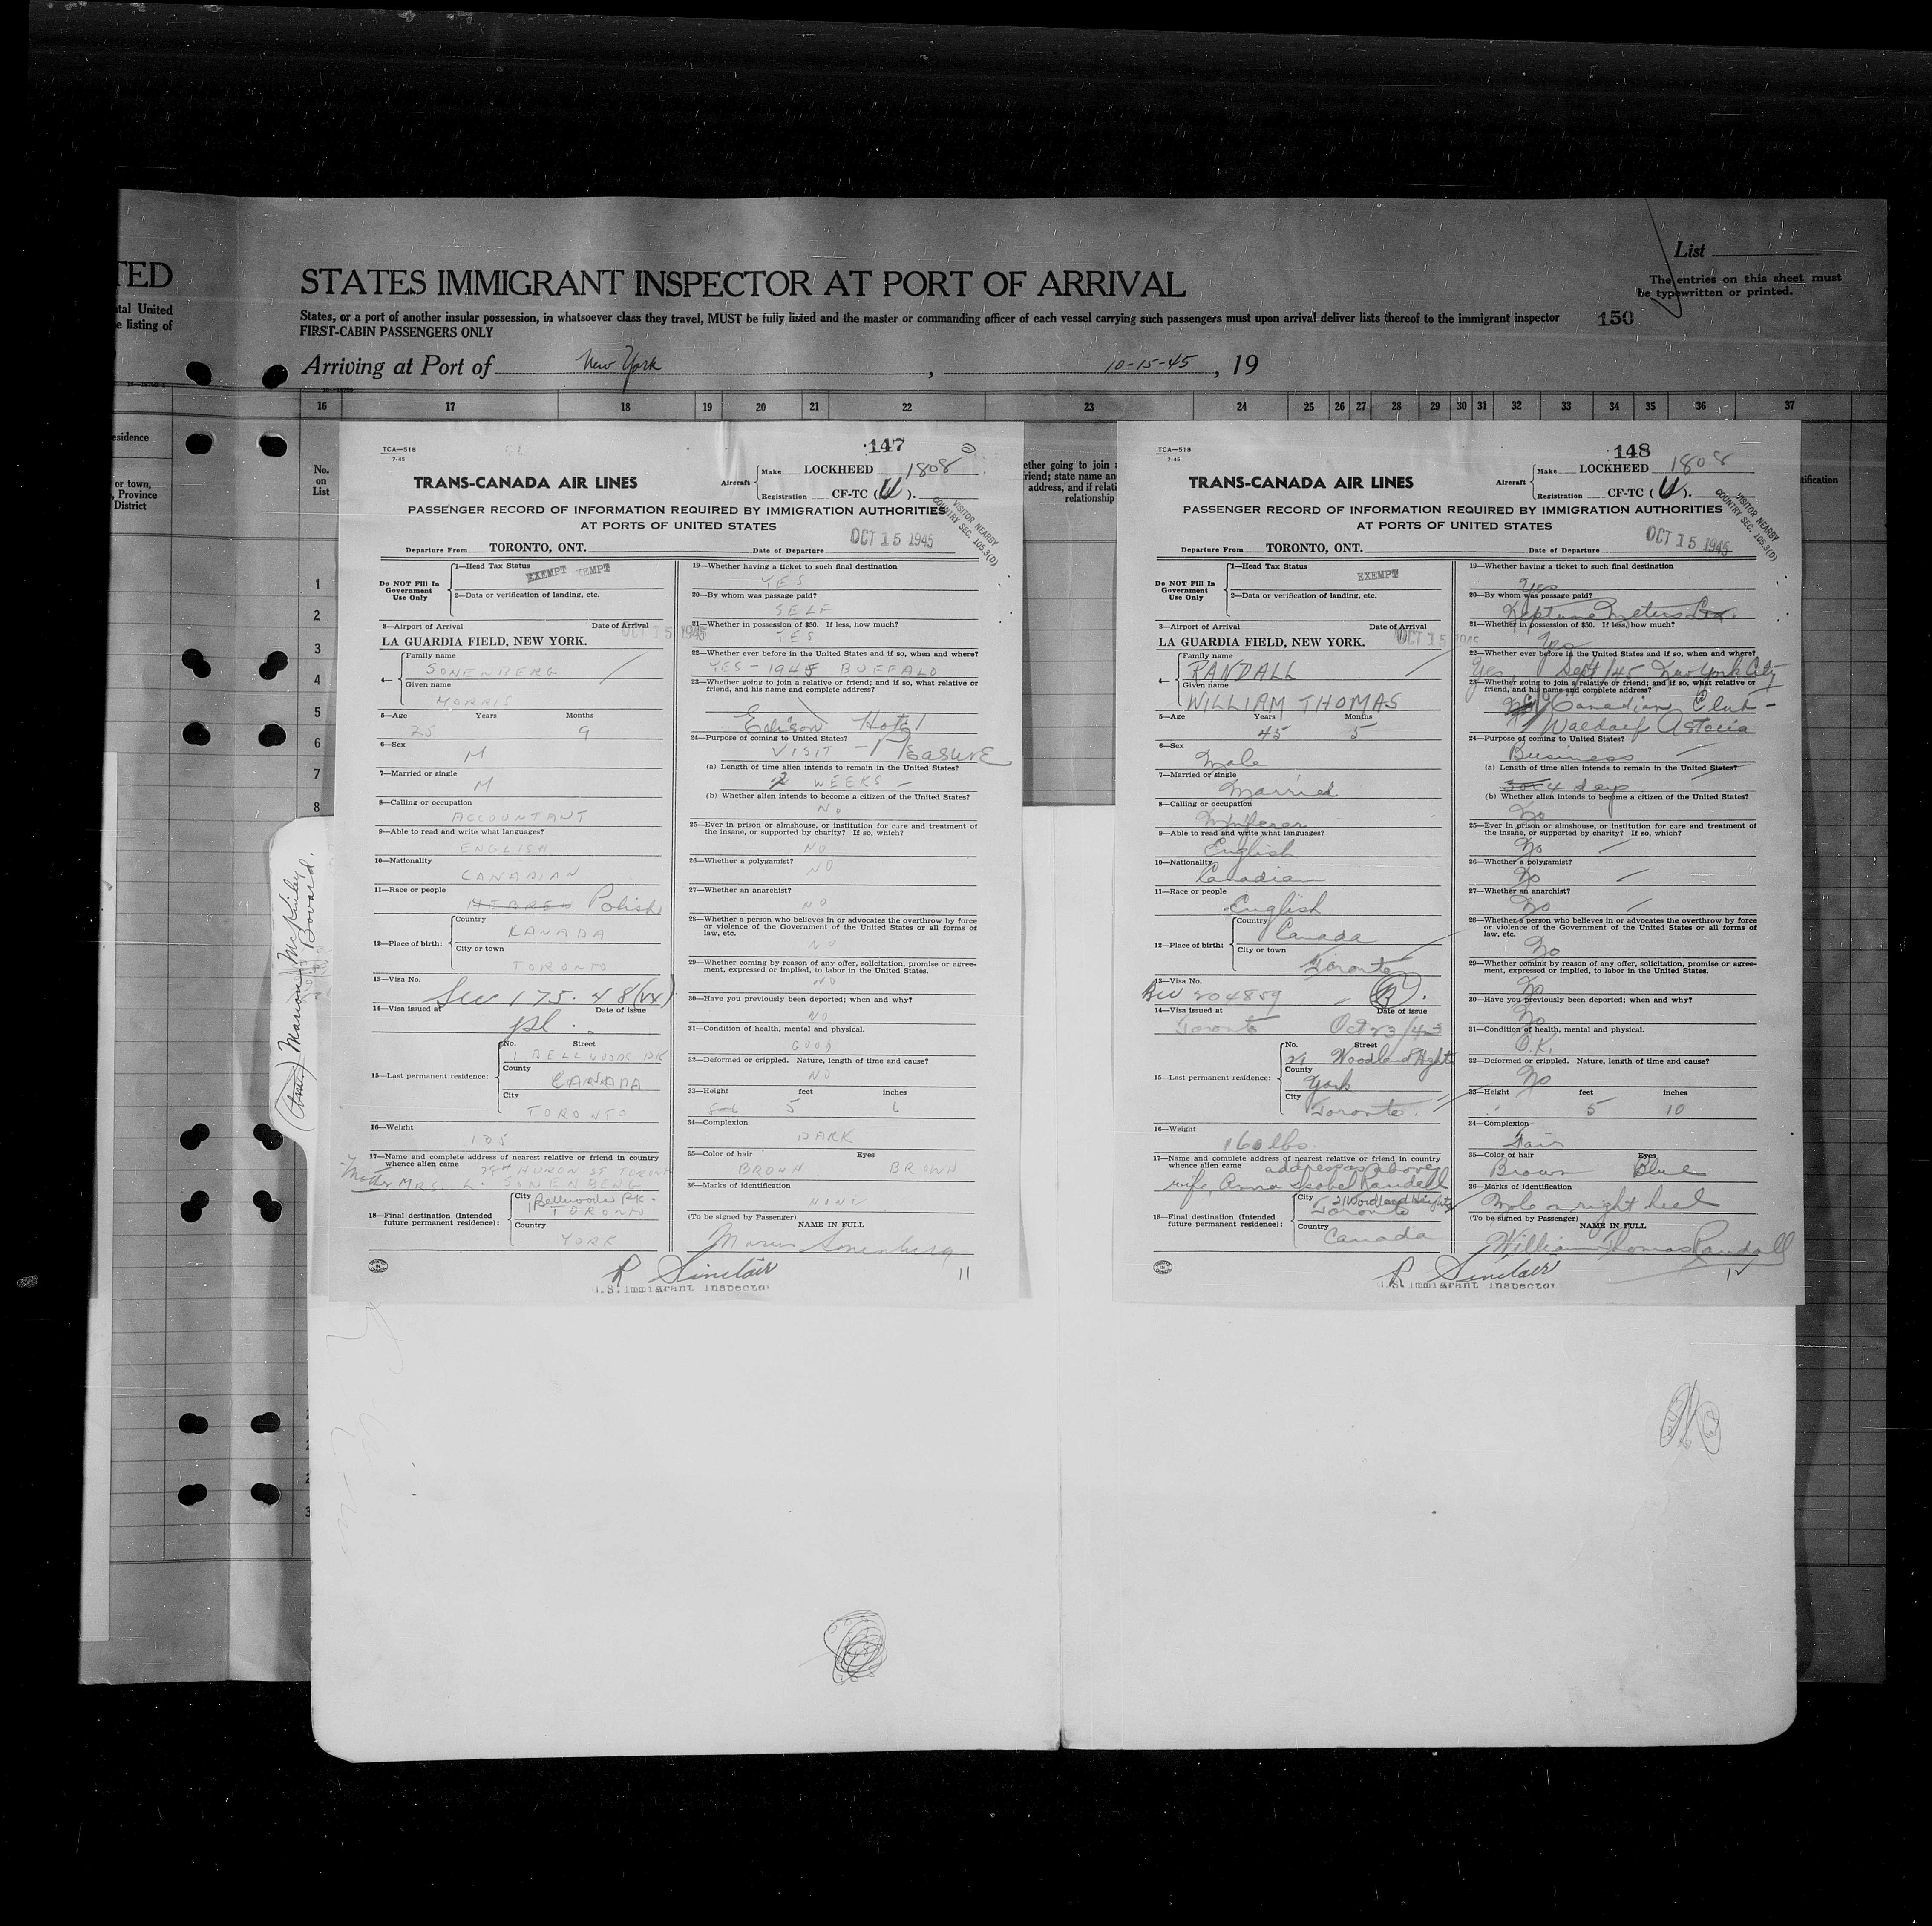 TED
ntal United
e listing of
STATES IMMIGRANT INSPECTOR AT PORT OF ARRIVAL
States, or a port of another insular possession, in whatsoever class they travel, MUST be fully listed and the master or commanding officer of each vessel carrying such passengers must upon arrival deliver lists thereof to the immigrant inspector
FIRST-CABIN PASSENGERS ONLY
List
The entries on this sheet must
be typewritten or printed.
150
Arriving at Port of New York, 10-15-45, 19
16 17 18 19 20 21 22 23 24 25 26 27 28 29 30 31 32 33 34 35 36 37
esidence
or town,
, Province
District
No.
on
List
1
2
3
4
5
6
7
8
ether going to join a
riend; state name an
address, and if relati
relationship
tification
(Am.) Marion McKinley
Bovard.
TCA—518
7-45
147
TRANS-CANADA AIR LINES
Aircraft
Make LOCKHEED 1808
Registration CF-TC (U).
PASSENGER RECORD OF INFORMATION REQUIRED BY IMMIGRATION AUTHORITIES
AT PORTS OF UNITED STATES
VISITOR NEARBY
COUNTRY SEC. 105.3(D)
Departure From TORONTO, ONT. Date of Departure OCT 15 1945
Do NOT Fill In
Government
Use Only
1—Head Tax Status EXEMPT
2—Data or verification of landing, etc.
3—Airport of Arrival Date of Arrival
LA GUARDIA FIELD, NEW YORK. OCT 15 1945
4— Family name
SONENBERG
Given name
MORRIS
5—Age Years Months
25 9
6—Sex
M
7—Married or single
M
8—Calling or occupation
ACCOUNTANT
9—Able to read and write what languages?
ENGLISH
10—Nationality
CANADIAN
11—Race or people
HEBREW Polish
12—Place of birth: Country
KANADA
City or town
TORONTO
13—Visa No.
Sec 175.48(VX)
14—Visa issued at Date of issue
15—Last permanent residence: No. Street
1 BELLWOODS PK
County
CANADA
City
TORONTO
16—Weight
135
17—Name and complete address of nearest relative or friend in country
whence alien came HURON ST TORONTO
Mother MRS. L. SONENBERG
18—Final destination (Intended
future permanent residence):
City 1 Bellwoods PK.
TORONTO
Country
YORK
19—Whether having a ticket to such final destination
YES
20—By whom was passage paid?
SELF
21—Whether in possession of $50. If less, how much?
YES
22—Whether ever before in the United States and if so, when and where?
YES - 1945 BUFFALO
23—Whether going to join a relative or friend; and if so, what relative or
friend, and his name and complete address?
Edison Hotel
24—Purpose of coming to United States?
VISIT - PleasurE
(a) Length of time alien intends to remain in the United States?
2 WEEKS
(b) Whether alien intends to become a citizen of the United States?
NO
25—Ever in prison or almshouse, or institution for care and treatment of
the insane, or supported by charity? If so, which?
NO
26—Whether a polygamist?
NO
27—Whether an anarchist?
NO
28—Whether a person who believes in or advocates the overthrow by force
or violence of the Government of the United States or all forms of
law, etc.
NO
29—Whether coming by reason of any offer, solicitation, promise or agree-
ment, expressed or implied, to labor in the United States.
NO
30—Have you previously been deported; when and why?
NO
31—Condition of health, mental and physical.
GOOD
32—Deformed or crippled. Nature, length of time and cause?
NO
33—Height feet inches
5 6
34—Complexion
DARK
35—Color of hair Eyes
BROWN BROWN
36—Marks of identification
NINE
(To be signed by Passenger)
NAME IN FULL
Morris Sonenberg
R Sinclair
U.S. Immigrant Inspector
11
TCA—518
7-45
148
TRANS-CANADA AIR LINES
Aircraft
Make LOCKHEED 1808
Registration CF-TC (U).
PASSENGER RECORD OF INFORMATION REQUIRED BY IMMIGRATION AUTHORITIES
AT PORTS OF UNITED STATES
VISITOR NEARBY
COUNTRY SEC. 105.3(D)
Departure From TORONTO, ONT. Date of Departure OCT 15 1945
Do NOT Fill In
Government
Use Only
1—Head Tax Status EXEMPT
2—Data or verification of landing, etc.
3—Airport of Arrival Date of Arrival
LA GUARDIA FIELD, NEW YORK. OCT 15 1945
4— Family name
RANDALL
Given name
WILLIAM THOMAS
5—Age Years Months
45 5
6—Sex
Male
7—Married or single
Married
8—Calling or occupation
9—Able to read and write what languages?
English
10—Nationality
Canadian
11—Race or people
English
12—Place of birth: Country
Canada
City or town
Toronto
13—Visa No.
204859
14—Visa issued at Date of issue
Toronto Oct 23/43
15—Last permanent residence: No. Street
21 Woodland Hghts
County
York
City
Toronto.
16—Weight
160 lbs.
17—Name and complete address of nearest relative or friend in country
whence alien came address as above
wife, Anna Isobel Randall
18—Final destination (Intended
future permanent residence):
City 21 Woodland Heights
Toronto
Country
Canada
19—Whether having a ticket to such final destination
Yes
20—By whom was passage paid?
Neptune Meters Co.
21—Whether in possession of $50. If less, how much?
Yes
22—Whether ever before in the United States and if so, when and where?
Yes Sept/45 New York City
23—Whether going to join a relative or friend; and if so, what relative or
friend, and his name and complete address?
Canadian Club -
Waldorf Astoria
24—Purpose of coming to United States?
Business
(a) Length of time alien intends to remain in the United States?
4 days
(b) Whether alien intends to become a citizen of the United States?
No
25—Ever in prison or almshouse, or institution for care and treatment of
the insane, or supported by charity? If so, which?
No
26—Whether a polygamist?
No
27—Whether an anarchist?
No
28—Whether a person who believes in or advocates the overthrow by force
or violence of the Government of the United States or all forms of
law, etc.
No
29—Whether coming by reason of any offer, solicitation, promise or agree-
ment, expressed or implied, to labor in the United States.
No
30—Have you previously been deported; when and why?
No
31—Condition of health, mental and physical.
O.K.
32—Deformed or crippled. Nature, length of time and cause?
No
33—Height feet inches
5 10
34—Complexion
Fair
35—Color of hair Eyes
Brown Blue
36—Marks of identification
Mole on right heel
(To be signed by Passenger)
NAME IN FULL
William Thomas Randall
R Sinclair
U.S. Immigrant Inspector
12